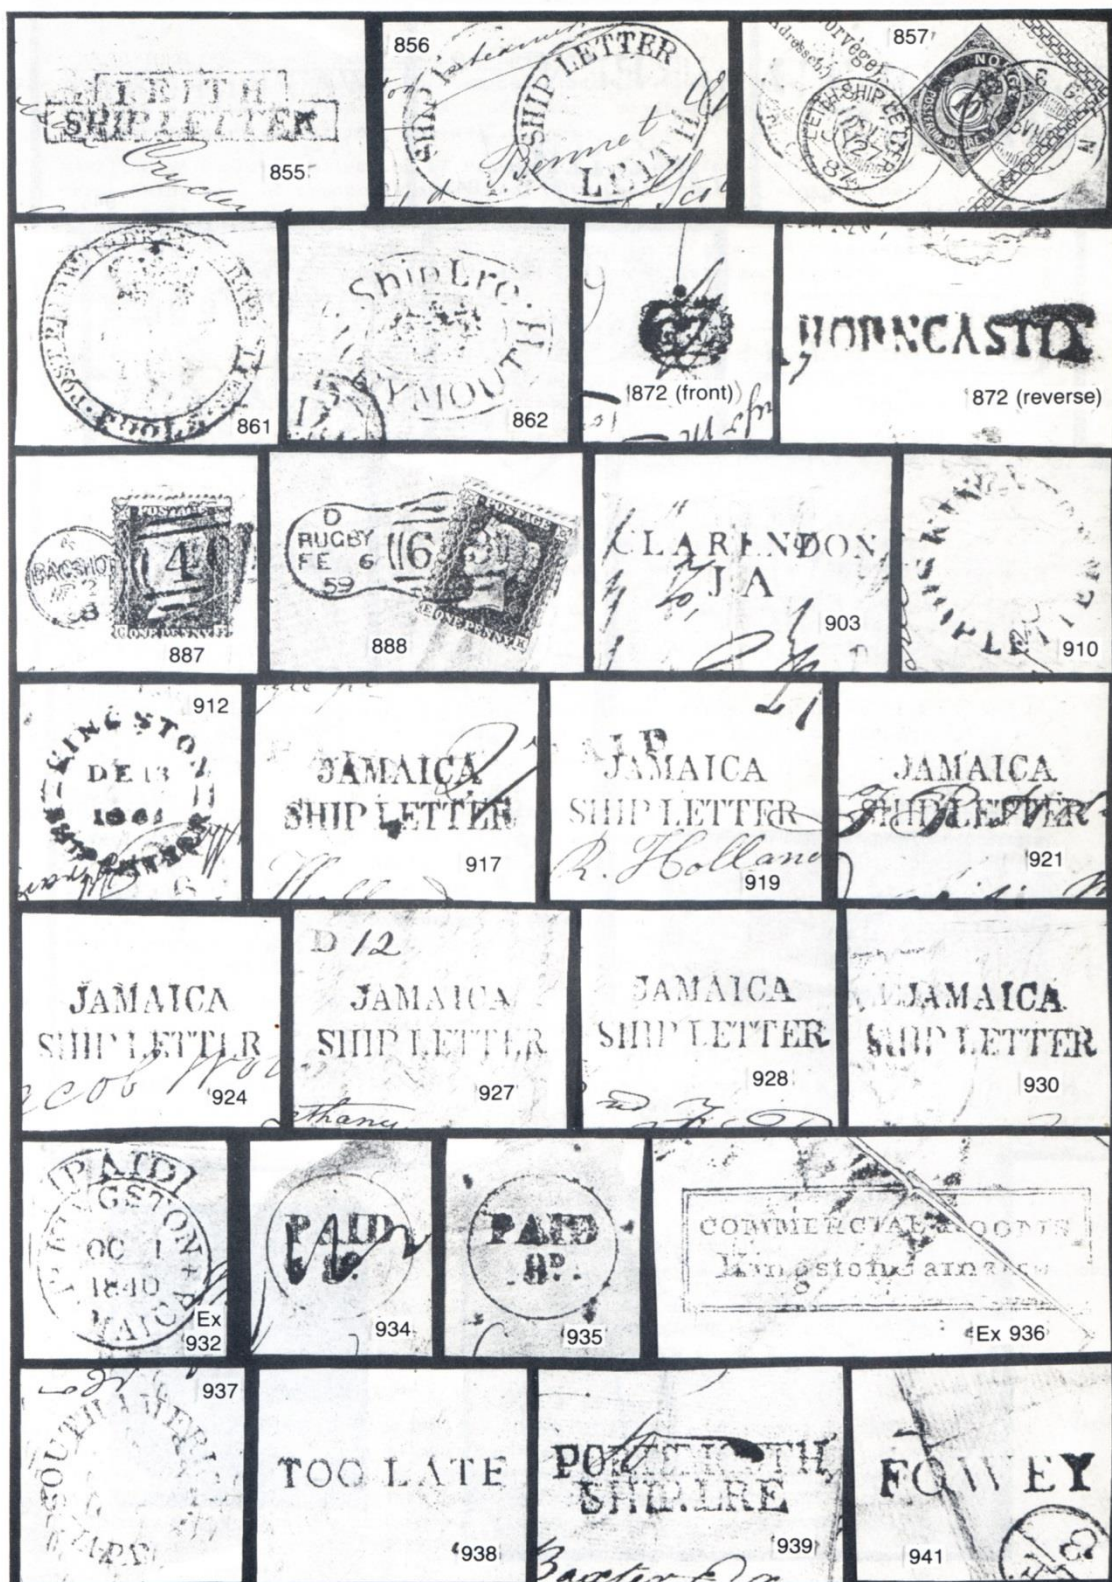 LEITH
SHIP LETTER
855
856
SHIP LETTER
SHIP LETTER
LEITH
Bennet
857
LEITH SHIP LETTER
27
87
NORGE
861
Ship Lre
PLYMOUTH
862
872 (front)
HORNCASTLE
872 (reverse)
BAGSHOT
POSTAGE
4
ONE PENNY
887
D
RUGBY
FE 6
59
6
POSTAGE
ONE PENNY
888
CLARENDON
JA
903
SHIP LETTER
910
912
KINGSTON
DE 13
1861
917
JAMAICA
SHIP LETTER
JAMAICA
SHIP LETTER
R. Hollan
919
JAMAICA
SHIP LETTER
921
JAMAICA
SHIP LETTER
924
D 12
JAMAICA
SHIP LETTER
927
JAMAICA
SHIP LETTER
928
JAMAICA
SHIP LETTER
930
PAID
KINGSTON
OC 1
1840
Ex
932
PAID
934
PAID
935
COMMERCIAL ROOMS
Kingston Jamaica
Ex 936
937
SOUTH AMERI
TOO LATE
938
PORTSMOUTH
SHIP LRE
939
FOWEY
941